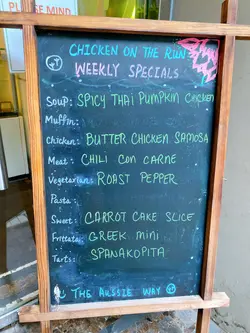 PLEASE MIND
CHICKEN ON THE RUN
WEEKLY SPECIALS
Soup: SPICY THAI PUMPKIN CHICKEN
Muffin:
Chicken: BUTTER CHICKEN SAMOSA
Meat: CHILI CON CARNE
Vegetarian: ROAST PEPPER
Pasta:
Sweet: CARROT CAKE SLICE
Frittata: GREEK MINI
Tarts: SPANAKOPITA
THE AUSSIE WAY